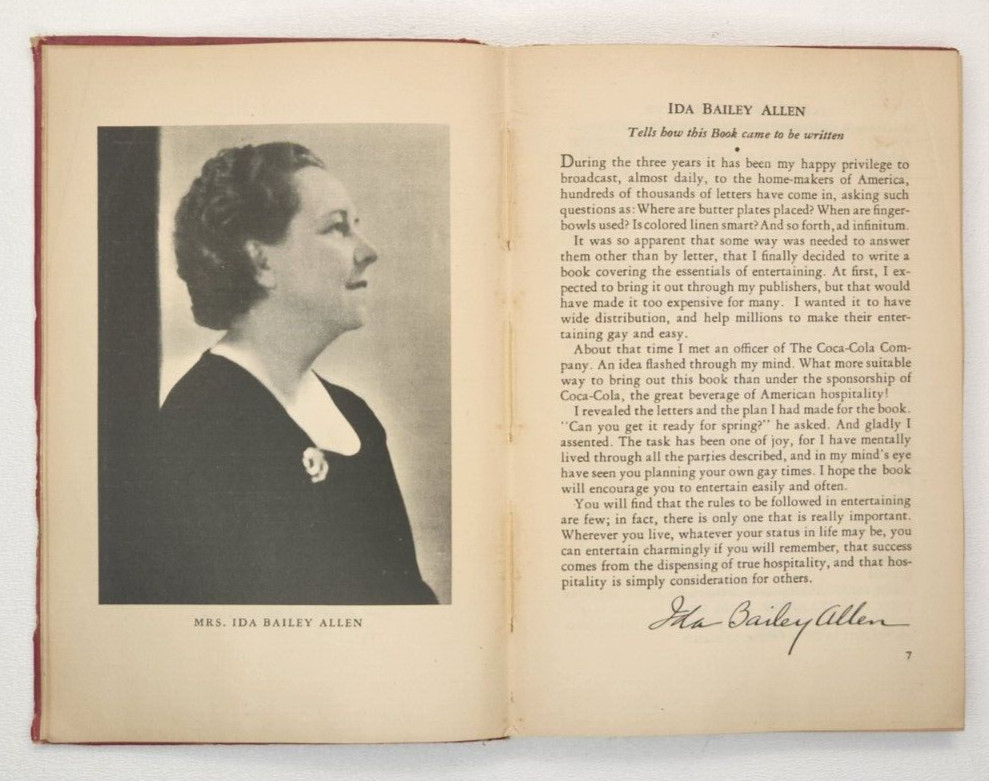 MRS. IDA BAILEY ALLEN
IDA BAILEY ALLEN
Tells how this Book came to be written
During the three years it has been my happy privilege to
broadcast, almost daily, to the home-makers of America,
hundreds of thousands of letters have come in, asking such
questions as: Where are butter plates placed? When are finger-
bowls used? Is colored linen smart? And so forth, ad infinitum.
It was so apparent that some way was needed to answer
them other than by letter, that I finally decided to write a
book covering the essentials of entertaining. At first, I ex-
pected to bring it out through my publishers, but that would
have made it too expensive for many. I wanted it to have
wide distribution, and help millions to make their enter-
taining gay and easy.
About that time I met an officer of The Coca-Cola Com-
pany. An idea flashed through my mind. What more suitable
way to bring out this book than under the sponsorship of
Coca-Cola, the great beverage of American hospitality!
I revealed the letters and the plan I had made for the book.
"Can you get it ready for spring?" he asked. And gladly I
assented. The task has been one of joy, for I have mentally
lived through all the parties described, and in my mind's eye
have seen you planning your own gay times. I hope the book
will encourage you to entertain easily and often.
You will find that the rules to be followed in entertaining
are few; in fact, there is only one that is really important.
Wherever you live, whatever your status in life may be, you
can entertain charmingly if you will remember, that success
comes from the dispensing of true hospitality, and that hos-
pitality is simply consideration for others.
Ida Bailey Allen
7